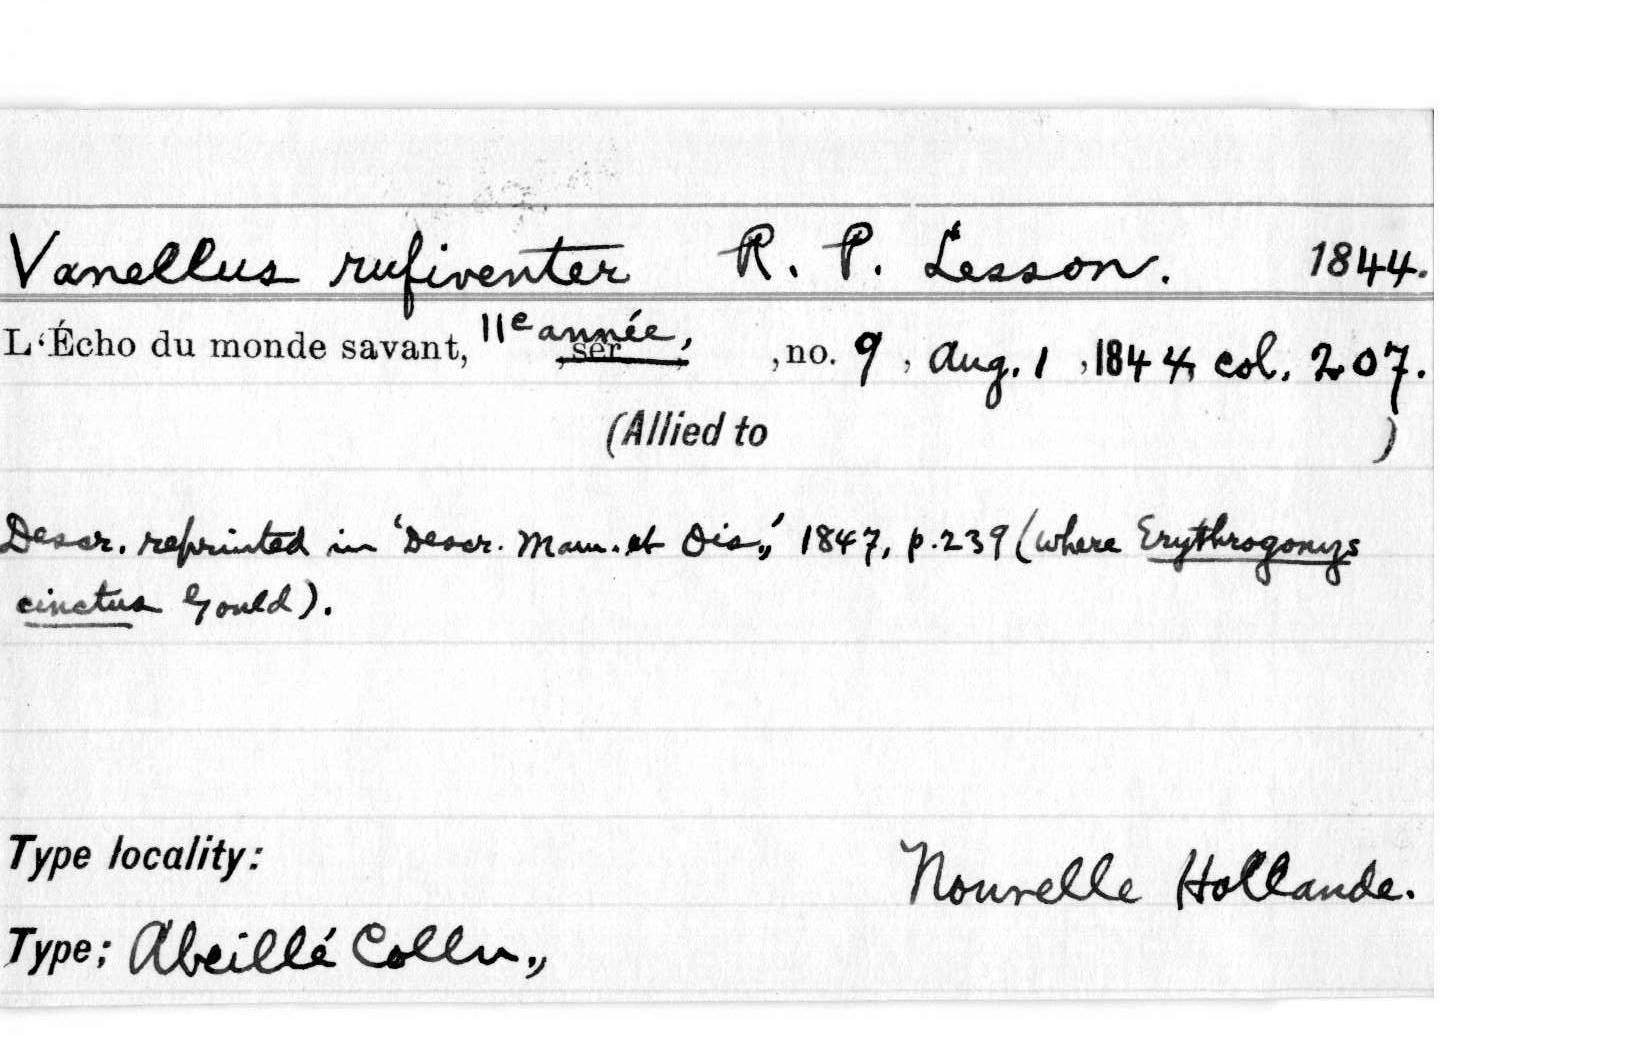 Vanellus rufiventer R. P. Lesson. 1844.
L'Écho du monde savant, 11e année, , sér. , no. 9 , Aug. 1 , 1844, col. 207.
(Allied to )
Descr. reprinted in 'Descr. Mam. et Ois.,' 1847, p. 239 (where Erythrogonys
cinctus Gould).
Type locality:
Nouvelle Hollande.
Type; Abeillé Colln.,